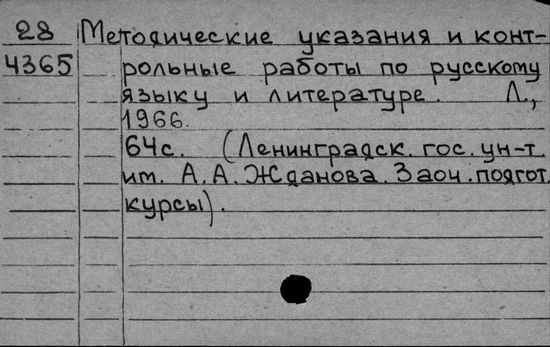 28 Методические указания и конт-
4365 рольные работы по русскому
языку и литературе. Л.,
1966.
64с. (Ленинградск. гос. ун-т
им. А. А. Жданова. Заоч. подгот.
курсы).